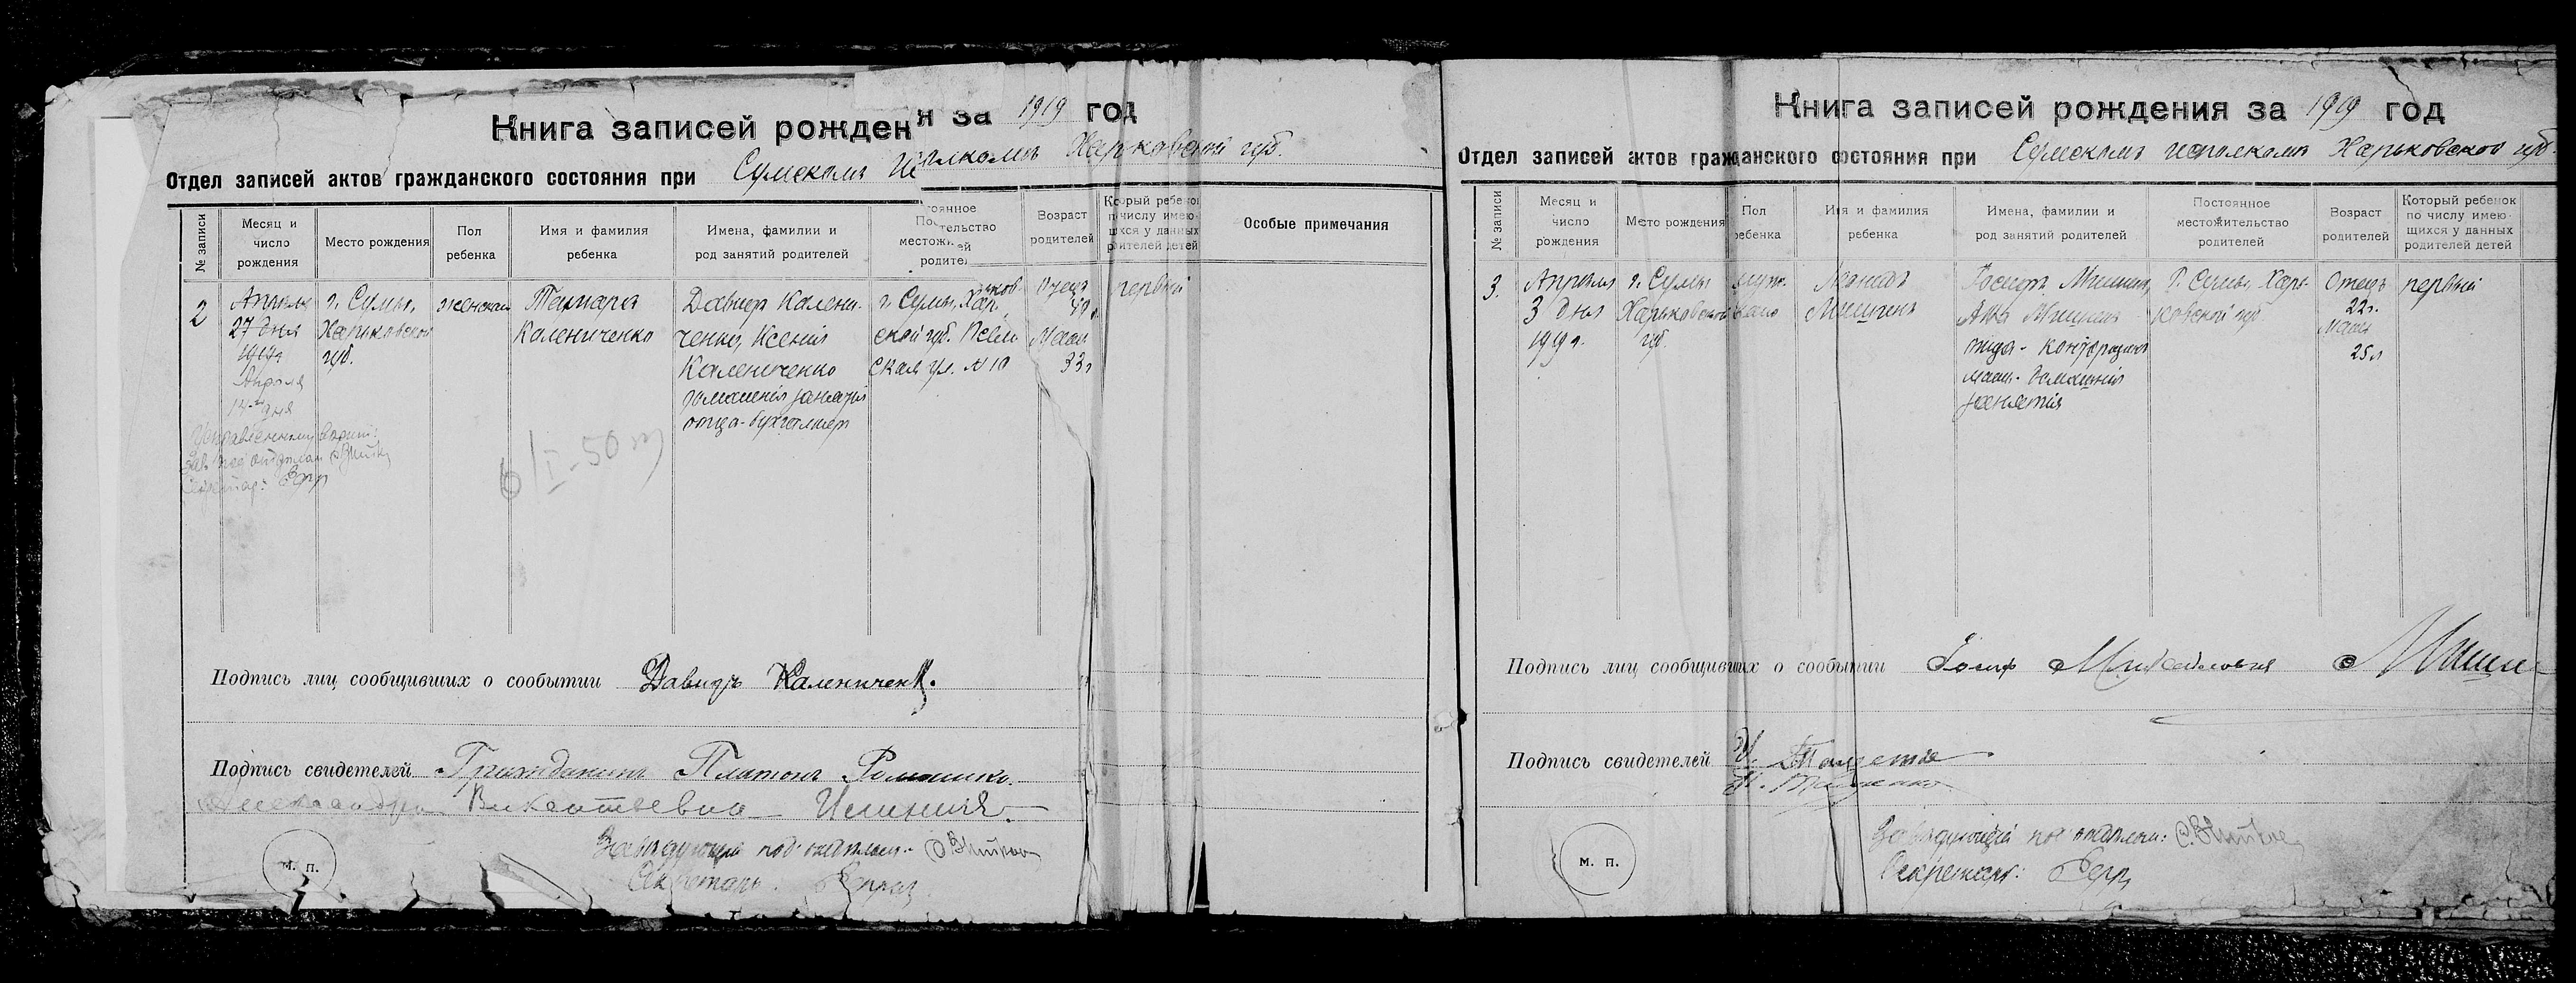 Книга записей рожден я за 1919 год
Отдел записей актов гражданского состояния при Сумскомъ Исполкомъ Харьковской губ.
№ записи
Месяц и число рождения
Место рождения
Пол ребенка
Имя и фамилия ребенка
Имена, фамилии и род занятий родителей
Постоянное местожительство родителей
Возраст родителей
Который ребенок по числу имеющихся у данных родителей детей
Особые примечания
2
Апреля
27 дня
1919 г
Апреля
дня
г. Сумы,
Харьковской
губ.
женский
Тамара
Калениченко
Давид Калени-
ченко, Ксения
Калениченко
домашния занятия
отца-бухгалтер
г. Сумы, Харьков-
ской губ. Псель-
ская ул. № 10
Отец
Мать
33 л
первый
6/I-50
Подпись лиц сообщивших о сообытии Давидъ Калениченко.
Подпись свидетелей Гражданинъ Платонъ Ромашко.
Александра Викентьевна
Заведующий под'отделом:
Секретарь:
м. п.
Книга записей рождения за 1919 год
Отдел записей актов гражданского состояния при Сумскомъ исполкомъ Харьковской губ.
№ записи
Месяц и число рождения
Место рождения
Пол ребенка
Имя и фамилия ребенка
Имена, фамилии и род занятий родителей
Постоянное местожительство родителей
Возраст родителей
Который ребенок по числу имеющихся у данных родителей детей
3.
Апреля
3 дня
1919 г.
г. Сумы
Харьковской
губ.
муж-
ского
Леонидъ
Мишинъ
Иосифъ Мишинъ,
Анна Мишина
отца - конторщик
мать - домашния
занятия
г. Сумы, Харь-
ковской губ.
Отец
22 г.
Мать
25 л
первый
Подпись лиц сообщивших о сообытии Иосиф Михайлович Мишин
Подпись свидетелей
Заведующий под отделом:
Секретарь:
м. п.